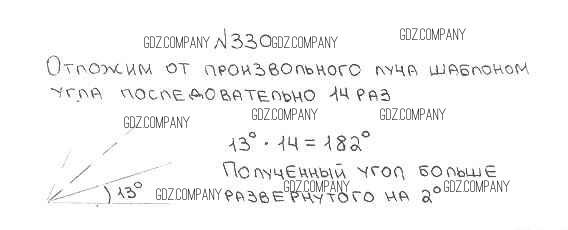 GDZ.COMPANY №330 GDZ.COMPANY GDZ.COMPANY
Отложим от произвольного луча шаблоном
угла последовательно 14 раз
GDZ.COMPANY GDZ.COMPANY GDZ.COMPANY
13° · 14 = 182°
Полученный угол больше
13° GDZ.COMPANY развернутого на 2° GDZ.COMPANY GDZ.COMPANY